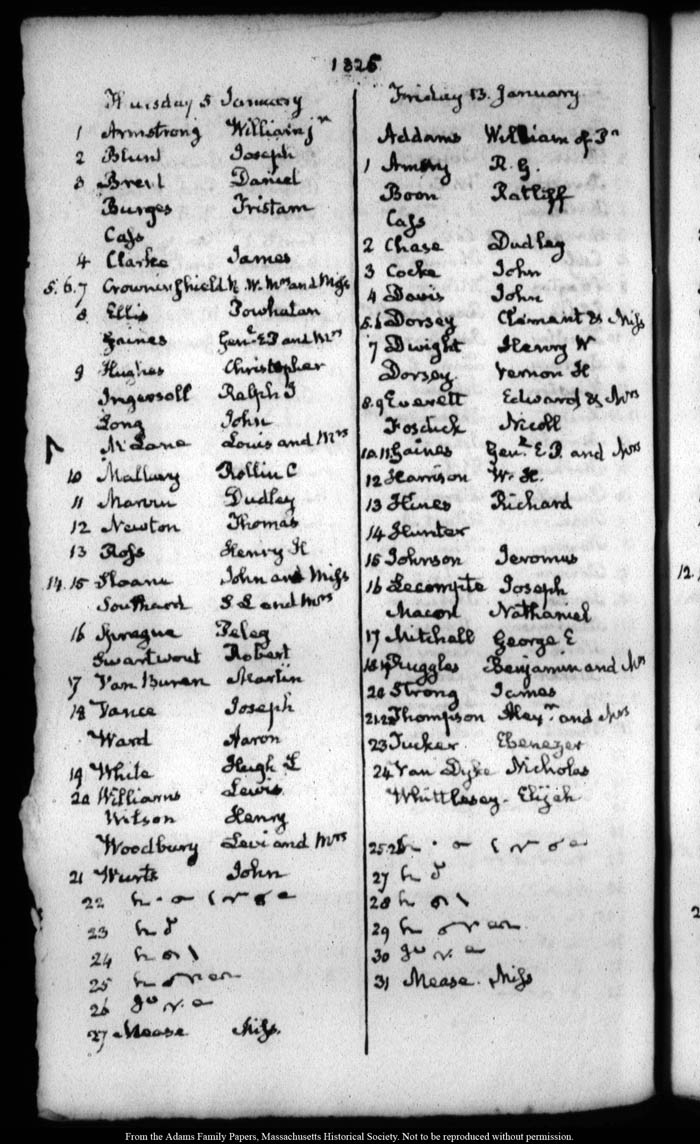 1825
Thursday 5 January
1 Armstrong William jr
2 Blunt Joseph
3 Brent Daniel
Burges Tristam
Cass
4 Clarke James
5. 6. 7 Crowninshield B. W. Mrs and Miss
8 Ellis Powhatan
Gaines Genl. E P and Mrs
9 Hughes Christopher
Ingersoll Ralph I
Long John
McLane Louis and Mrs
10 Mallary Rollin C
11 Marvin Dudley
12 Newton Thomas
13 Ross Henry H
14. 15 Sloane John and Miss
Southard S. L and Mrs
16 Sprague Peleg
Swartwout Robert
17 Van Buren Martin
18 Vance Joseph
Ward Aaron
19 White Hugh L
20 Williams Lewis
Wilson Henry
Woodbury Levi and Mrs
21 Wurts John
22
23
24
25
26
27 Mease Miss.
Friday 13. January
Addams William of Pa
1 Amory R. G.
Boon Ratliff
Cass
2 Chase Dudley
3 Cocke John
4 Davis John
5. 6 Dorsey Clement & Miss
7 Dwight Henry W
Dorsey Vernon H
8. 9 Everett Edward & Mrs
Fosdick Nicoll
10. 11 Gaines Genl. E. P. and Mrs
12 Harrison W. H.
13 Hines Richard
14 Hunter
15 Johnson Jeromus
16 Lecompte Joseph
Macon Nathaniel
17 Mitchell George E
18 19 Ruggles Benjamin and Mrs
20 Strong James
21. 22 Thompson Alexr. and Mrs
23 Tucker. Ebenezer
24 Van Dyke Nicholas
Whittlesey. Elijah
25 26
27
28
29
30
31 Mease. Miss
12.
2
From the Adams Family Papers, Massachusetts Historical Society. Not to be reproduced without permission.